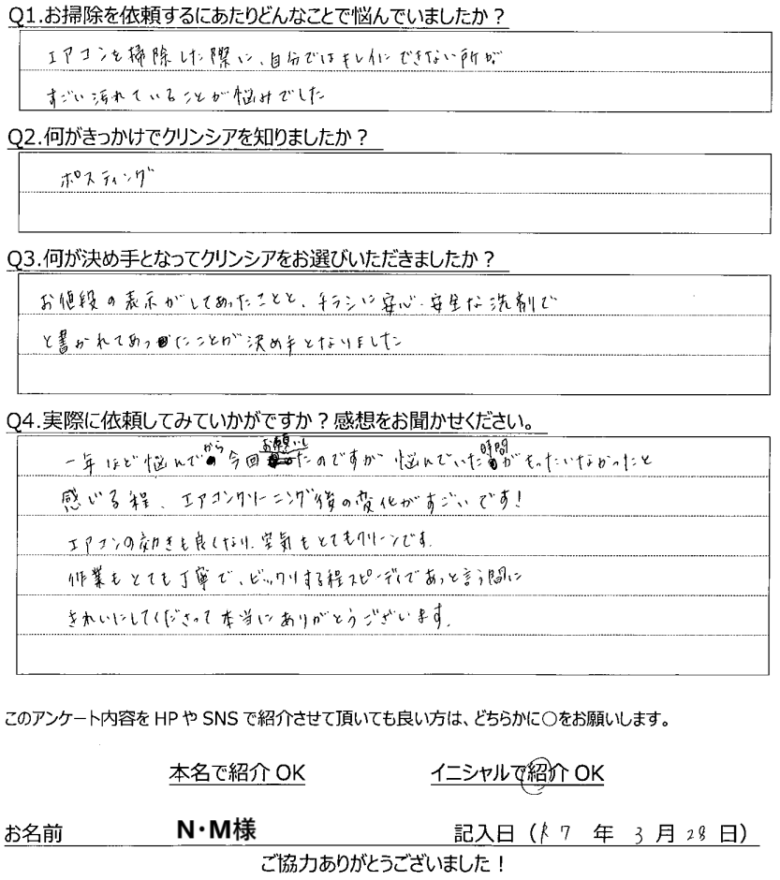 Q1.お掃除を依頼するにあたりどんなことで悩んでいましたか?
エアコンを掃除した際に、自分ではキレイにできない所が
すごい汚れていることが悩みでした
Q2.何がきっかけでクリンシアを知りましたか?
ポスティング
Q3.何が決め手となってクリンシアをお選びいただきましたか?
お値段の表示がしてあったことと、チラシに安心・安全な洗剤で
と書かれてあったことが決め手となりました
Q4.実際に依頼してみていかがですか?感想をお聞かせください。
一年ほど悩んでから今回お願いしたのですが悩んでいた時間がもったいなかったと
感じる程、エアコンクリーニング後の変化がすごいです!
エアコンの効きも良くなり、空気もとてもクリーンです。
作業もとても丁寧で、ビックリする程スピーディであっと言う間に
きれいにしてくださって本当にありがとうございます。
このアンケート内容をHPやSNSで紹介させて頂いても良い方は、どちらかに○をお願いします。
本名で紹介OK イニシャルで紹介OK
お名前 N・M様 記入日(R7 年 3 月 28 日)
ご協力ありがとうございました!